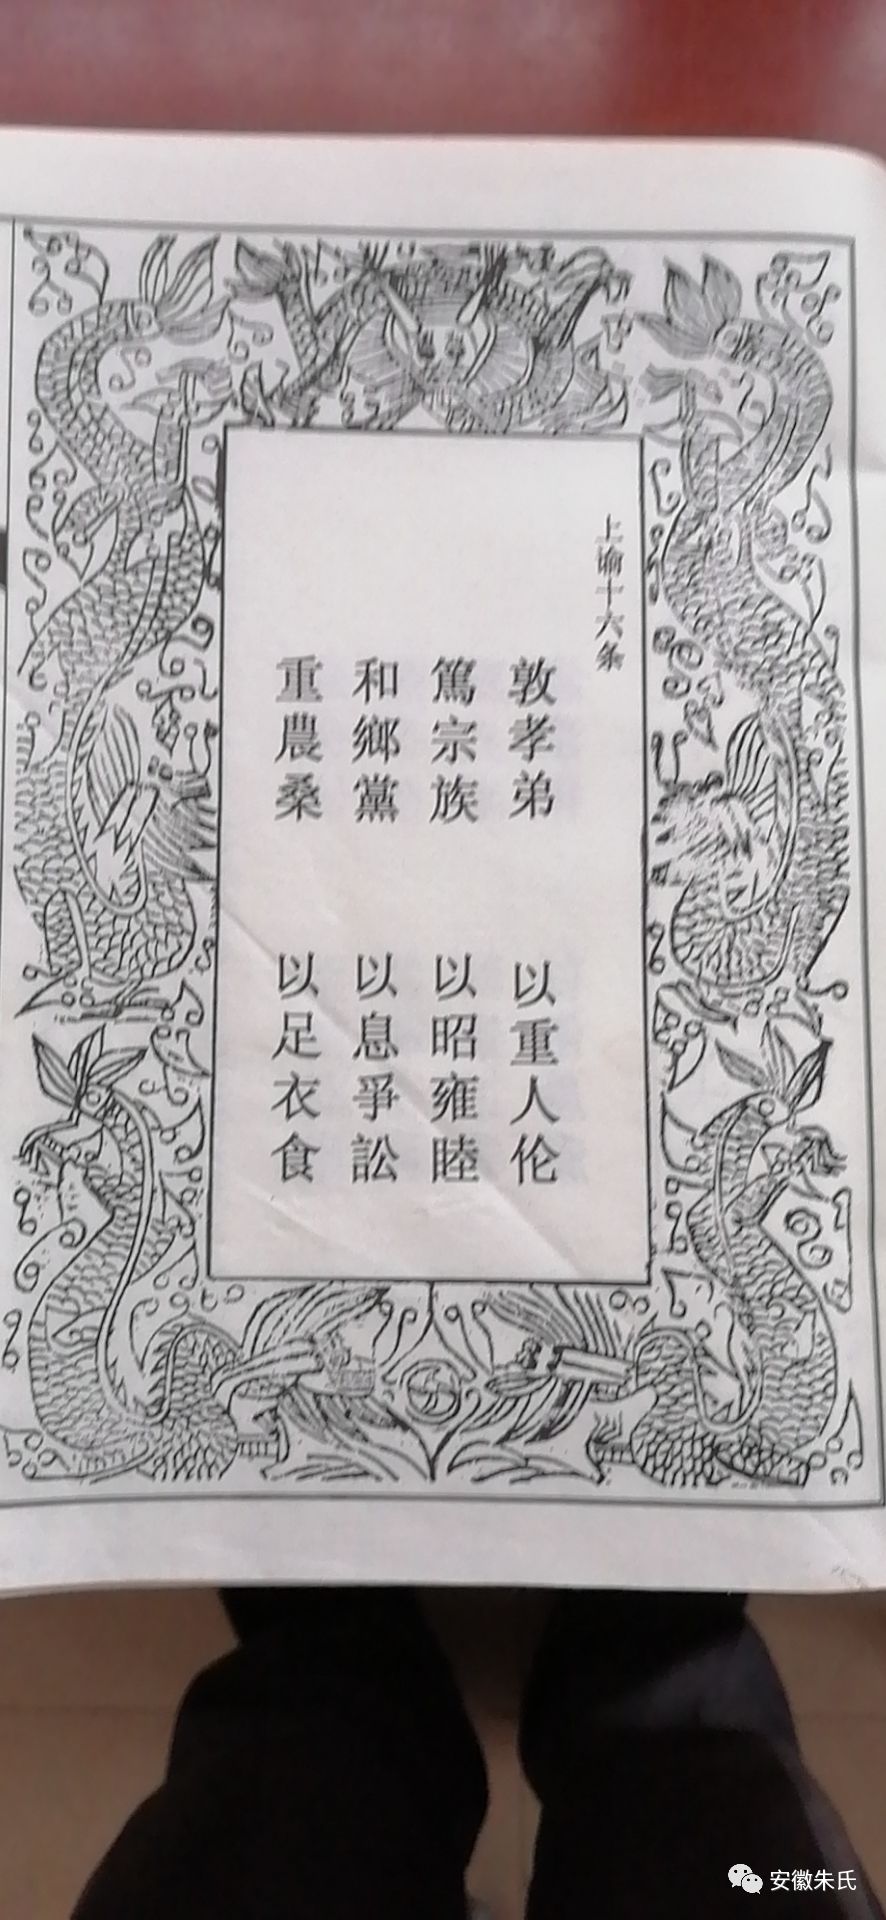 上谕十六条
敦孝弟 以重人伦
篤宗族 以昭雍睦
和鄉黨 以息爭訟
重農桑 以足衣食
安徽朱氏